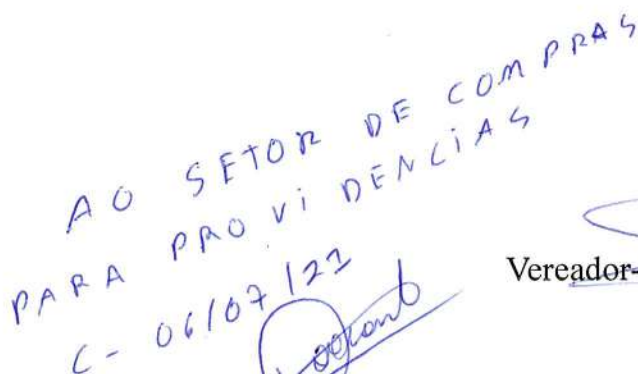 AO SETOR DE COMPRAS
PARA PROVIDENCIAS
C- 06/07/21
Vereador-